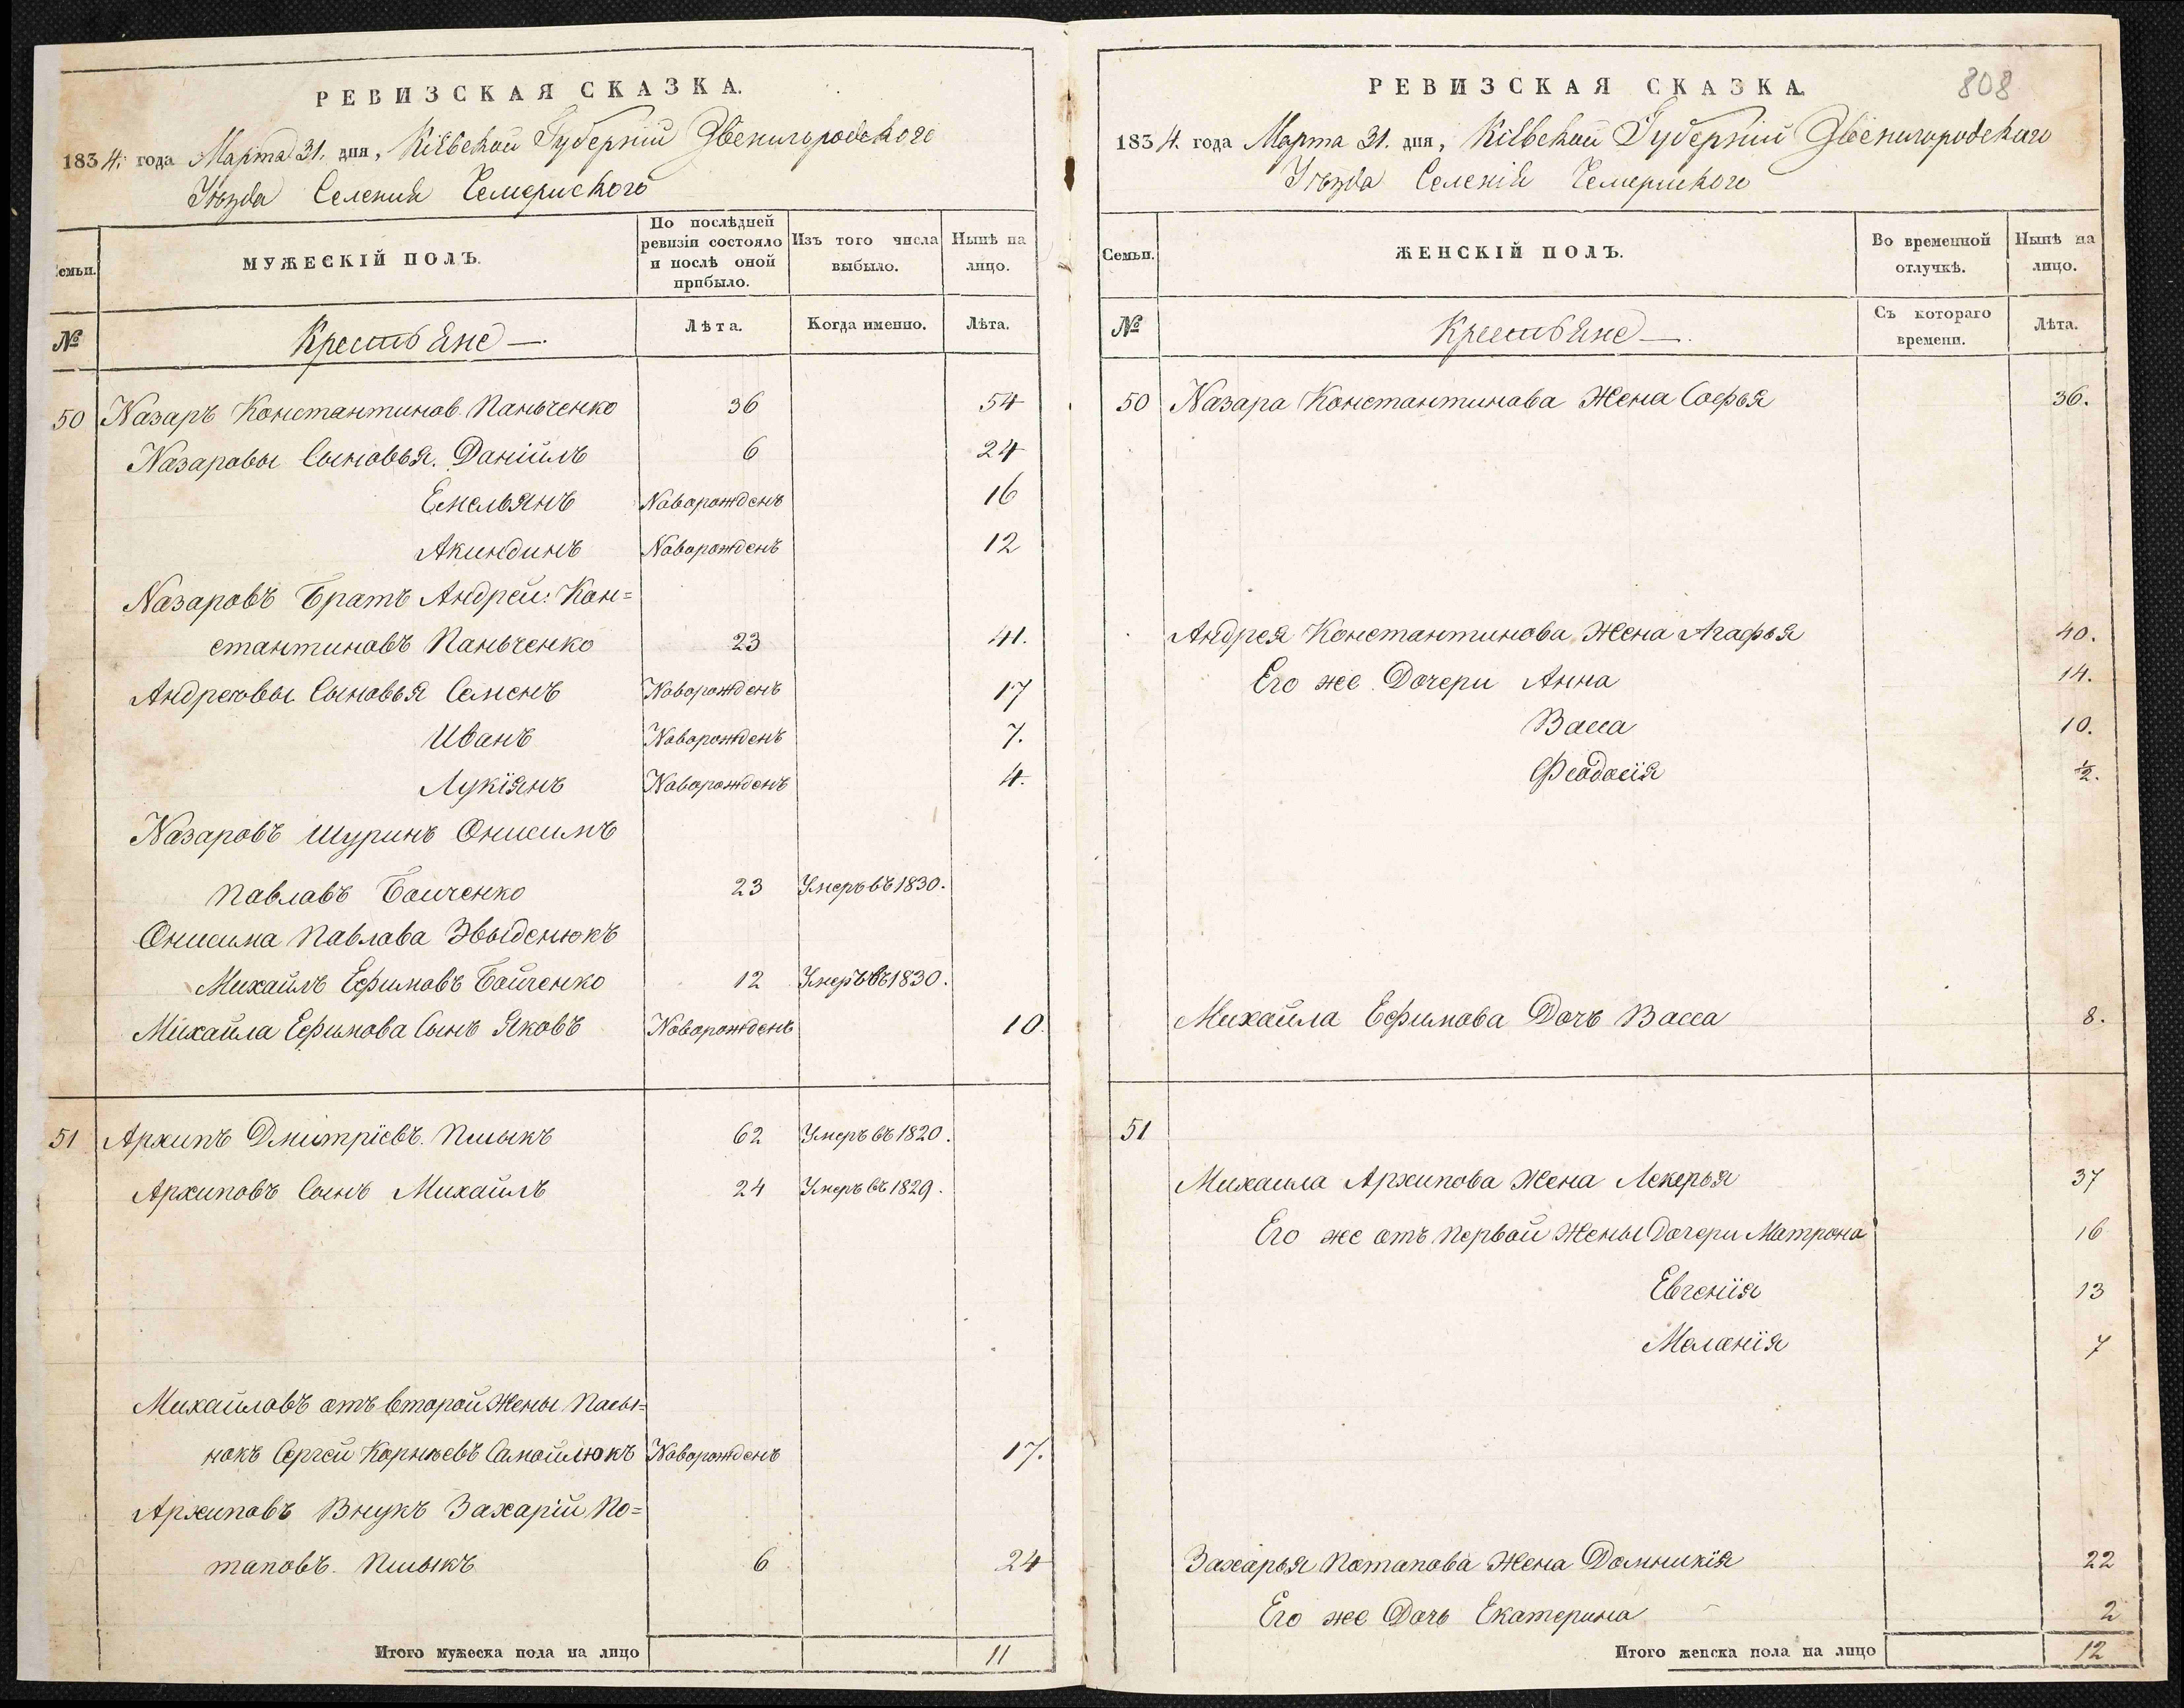 РЕВИЗСКАЯ СКАЗКА.
1834. года Марта 31. дня, Кіевской Губерніи Звенигородского
Уѣзда Селенія Чемериского
Семьи. МУЖЕСКІЙ ПОЛЪ. По послѣдней ревизіи состояло и послѣ оной прибыло. Изъ того числа выбыло. Нынѣ на лицо.
№ Крестьяне —. Лѣта. Когда именно. Лѣта.
50 Назаръ Константинов. Паньченко 36 54
Назаровы Сыновья. Даніилъ 6 24
Емельянъ Новорожденъ 16
Акиндинъ Новорожденъ 12
Назаровъ Братъ Андрей: Кон=
стантиновъ Паньченко 23 41.
Андреевы Сыновья Семенъ Новорожденъ 17
Иванъ Новорожденъ 7.
Лукіянъ Новорожденъ 4.
Назаровъ Шуринъ Онисимъ
Павловъ Бойченко 23 Умеръ въ 1830.
Онисима Павлова
Михайлъ Ефимовъ Бойченко 12 Умеръ въ 1830.
Михайла Ефимова Сынъ Яковъ Новорожденъ 10.
51 Архипъ Дмитріевъ. Пшыкъ 62 Умеръ въ 1820.
Архиповъ Сынъ Михайлъ 24 Умеръ въ 1829.
Михайловъ отъ второй Жены Пасы=
нокъ Сергей Корнѣевъ Самойлюкъ Новорожденъ 17.
Архиповъ Внукъ Захарій По=
таповъ. Пшыкъ 6 24
Итого мужеска пола на лицо 11
РЕВИЗСКАЯ СКАЗКА. 808
1834. года Марта 31. дня, Кіевской Губерніи Звенигородскаго
Уѣзда Селенія Чемериского
Семьи. ЖЕНСКІЙ ПОЛЪ. Во временной отлучкѣ. Нынѣ на лицо.
№ Крестьяне —. Съ котораго времени. Лѣта.
50 Назара Константинова Жена Софья 36.
Андрея Константинова Жена Агафья 40.
Его же Дочери Анна 14.
Васса 10.
Феодосія ½.
Михайла Ефимова Дочъ Васса 8.
51
Михаила Архипова Жена Лекерья 37
Его же отъ первой Жены Дочери Матрона 16
Евгенія 13
Меланія 7
Захарья Потапова Жена Домникія 22
Его же Дочь Екатерина 2
Итого женска пола на лицо 12